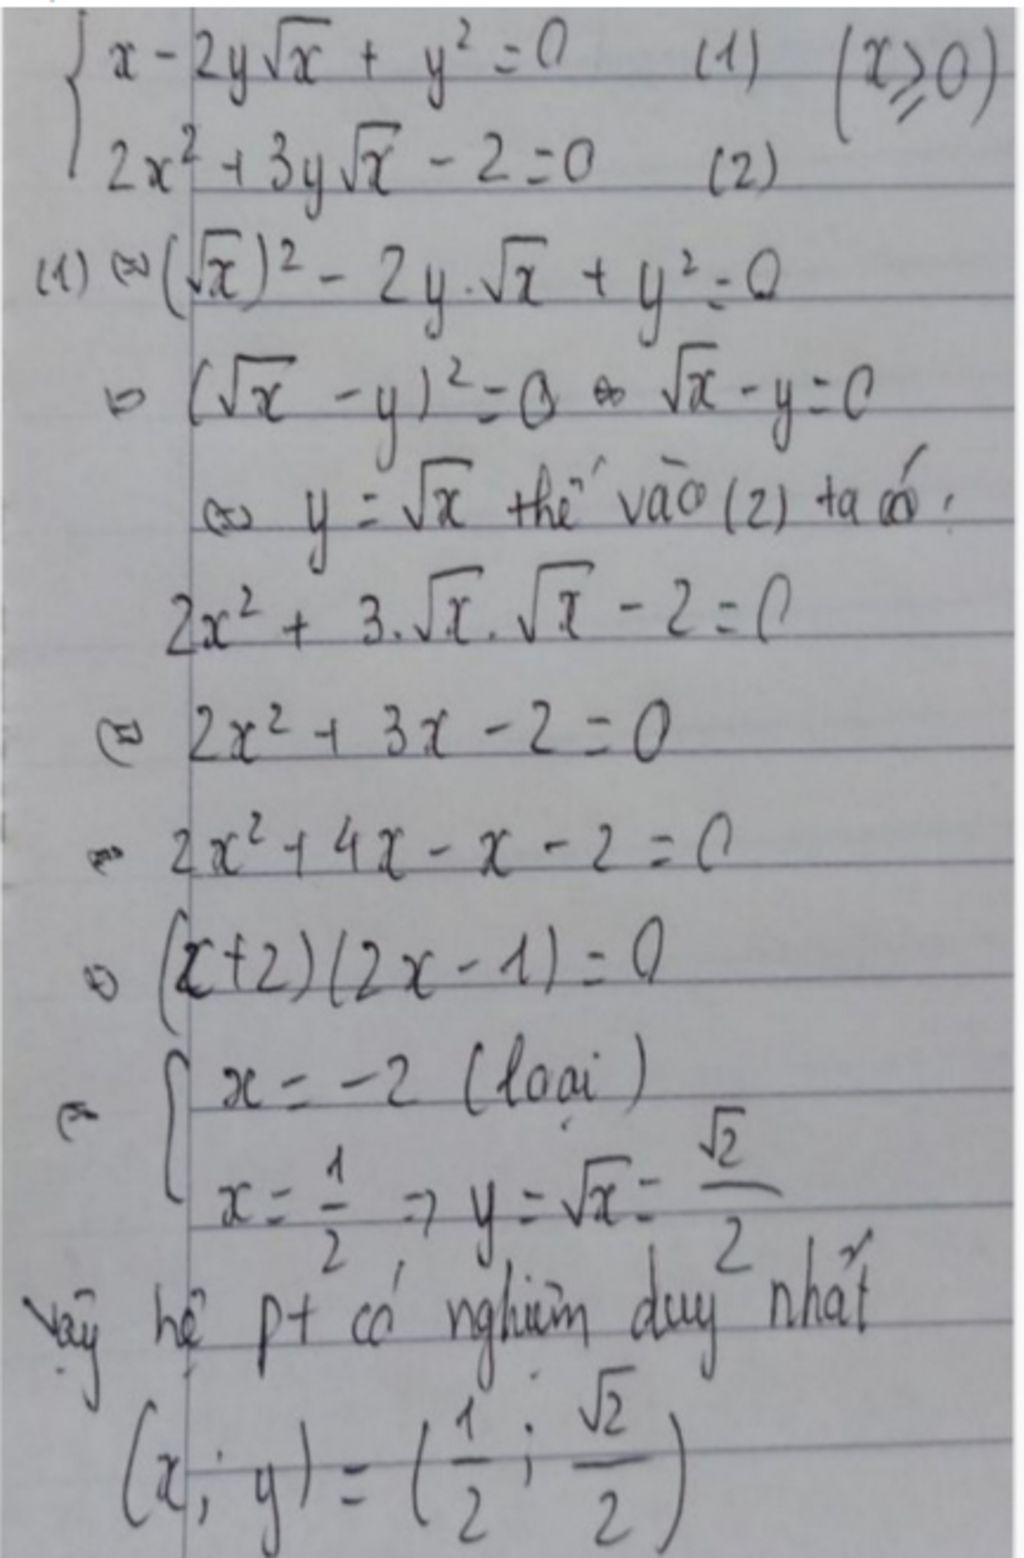 { x - 2y√x + y² = 0 (1) (x ⩾ 0)
2x² + 3y√x - 2 = 0 (2)
(1) ⇔ (√x)² - 2y.√x + y² = 0
⇔ (√x - y)² = 0 ⇔ √x - y = 0
⇔ y = √x thế vào (2) ta có:
2x² + 3.√x.√x - 2 = 0
⇔ 2x² + 3x - 2 = 0
⇔ 2x² + 4x - x - 2 = 0
⇔ (x+2)(2x - 1) = 0
⇔ [ x = -2 (loại)
x = 1/2 ⇒ y = √x = √2/2
Vậy hệ pt có nghiệm duy nhất
(x; y) = (1/2; √2/2)